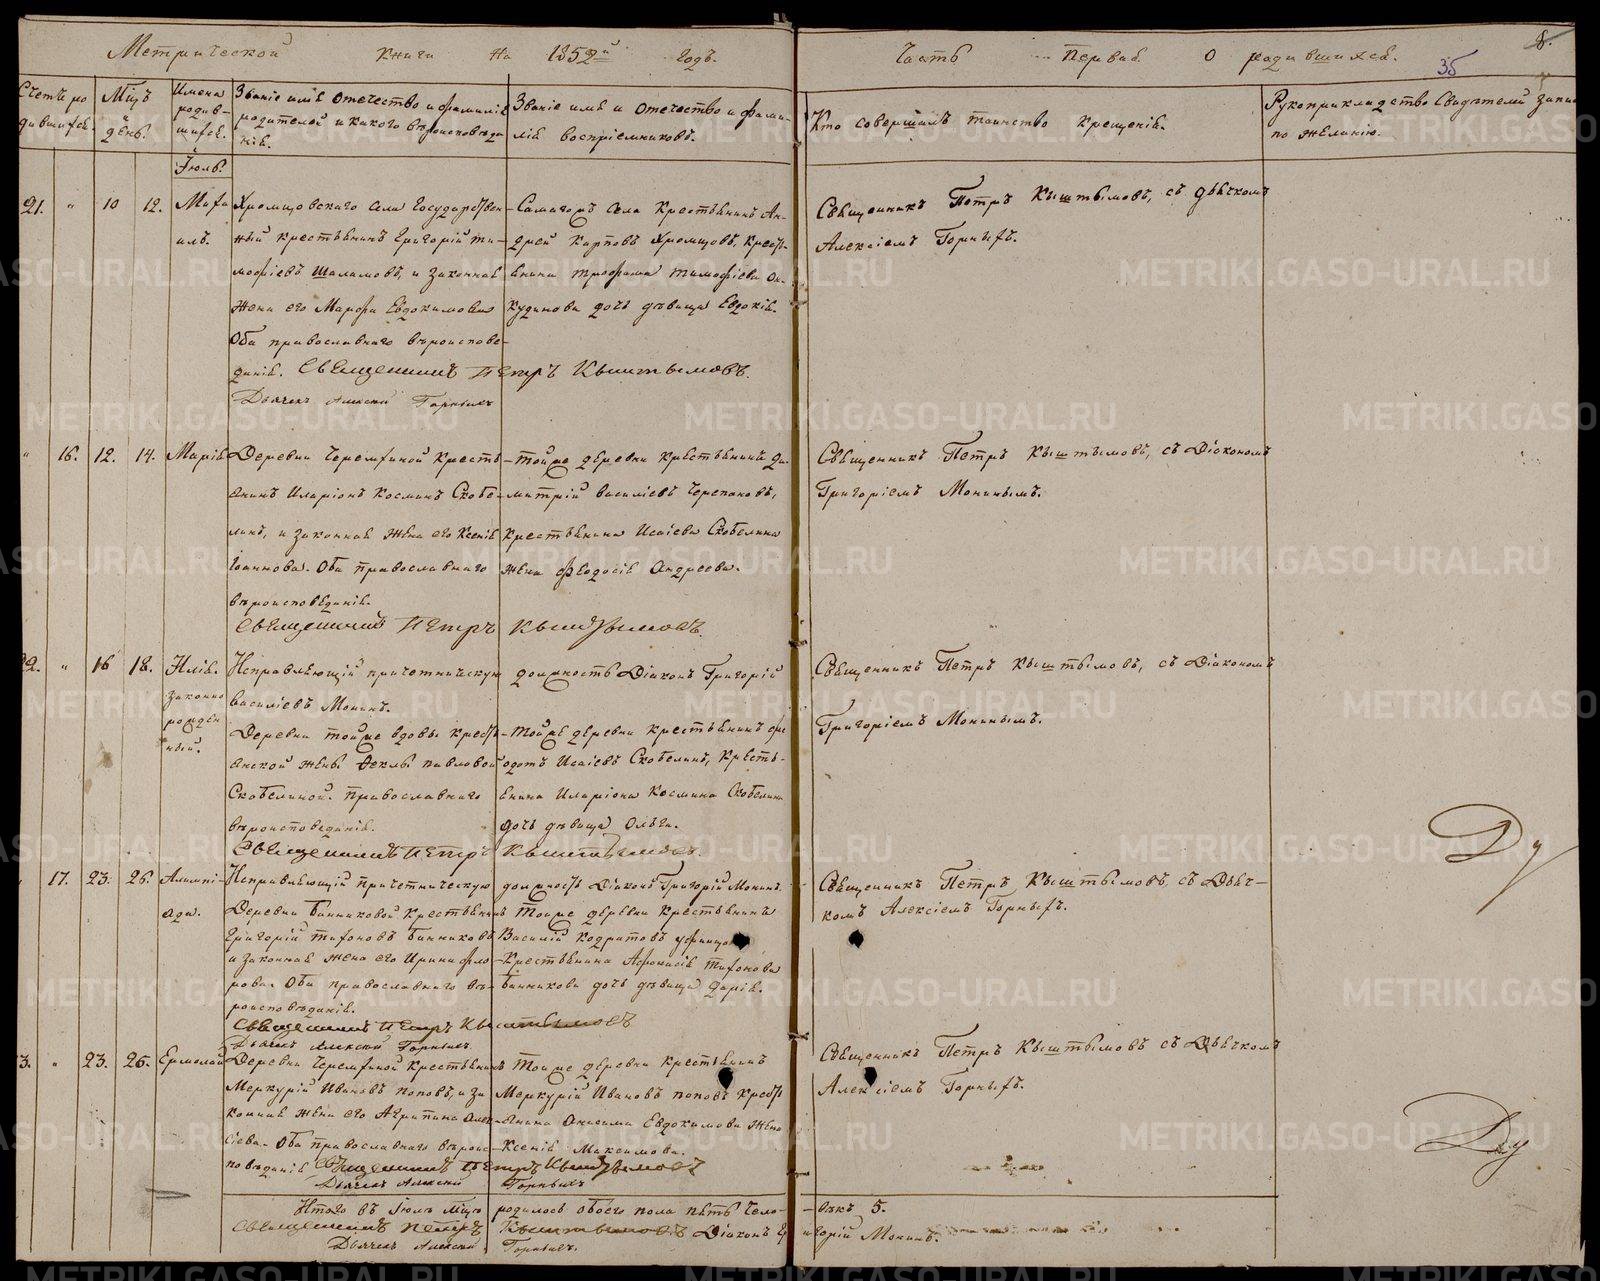 Метрической книги на 1852й годъ.
Часть первая о родившихся.
8.
35
Счетъ родившихся.
Мцъ и день.
Имена родившихся.
Званіе имя отечество и фамилія
родителей и какого вѣроисповѣда
нія.
Званіе имя и отечество и фами-
лія воспріемниковъ.
Кто совершалъ таинство крещенія.
Рукоприкладство свидѣтелей записи
по желанію.
Іюль.
21. " 10 12. Миха
илъ.
Хромцовскаго села государствен
ный крестьянинъ Григорій Ти-
мофіевъ Шаламовъ, и законная
жена его Марфа Евдокимова
Оба православнаго вѣроиспове-
данія. Священникъ Петръ Кыштымовъ.
Дьячекъ Алексій Горныхъ
Самагоръ села крестьянинъ Ан-
дрей Карповъ Хромцовъ, кресть-
янина Трофима Тимофіева Ан-
кудинова дочь дѣвица Евдокія.
Священникъ Петръ Кыштымовъ, съ дьячкомъ
Алексіемъ Горныхъ.
" 16. 12. 14. Марія
Деревни Черемхиной кресть
янинъ Иларіонъ Косминъ Скобе-
линъ, и законная жена его Ксенія
Іоаннова. Оба православнаго
вѣроисповеданія.
Священникъ Петръ Кыштымовъ.
-тойже деревни крестьянинъ Ди-
митрій Василіевъ Черепановъ,
крестьянина Исаіева Скобелина
жена Феодосія Андреева.
Священникъ Петръ Кыштымовъ, съ Діакономъ
Григоріемъ Мониным.
22. " 16 18. Илія.
законно
рожден
ный.
Исправляющій причетническую должность Діаконъ Григорій
Василіевъ Монинъ.
Деревни тойже вдовы кресть
янской жены Феклы Павловой
Скобелиной. Православнаго
вѣроисповеданія.
Священникъ Петръ Кыштымовъ.
-тойже деревни крестьянинъ Фе
одотъ Исаіевъ Скобелинъ, кресть-
янина Иларіона Космина Скобелина
дочь дѣвица Ольга.
Священникъ Петръ Кыштымовъ, съ Діакономъ
Григоріемъ Мониным.
17. 23. 26. Алимпі-
ада.
Исправляющій причетническую должность Діаконъ Григорій Монинъ.
Деревни Банниковой крестьянинъ
Григорій Тифоновъ Банниковъ
и законная жена его Ирина Фло
рова. Оба православнаго вѣ-
роисповѣданія.
Священникъ Петръ Кыштымовъ
Дьячекъ Алексій Горныхъ.
Тойже деревни крестьянинъ
Василій Кодратовъ
-Крестьянина Афонасія Тифонова
Банникова дочь дѣвица Дарія.
Священникъ Петръ Кыштымовъ, съ Дьяч-
комъ Алексіемъ Горныхъ.
Ду
3. " 23. 25. Ермолай
Деревни Черемхиной крестьянинъ
Меркурій Ивановъ Поповъ, и за
конная жена его Агрипина Алек-
сіева. Оба православнаго вѣроис-
повѣданія Священникъ Петръ Кыштымовъ
Дьячекъ Алексій Горныхъ
Тойже деревни крестьянинъ
Меркурій Ивановъ Поповъ кресть
янина Анисима Евдокимова жена
Ксенія Максимова.
Священникъ Петръ Кыштымовъ съ Дьячкомъ
Алексіемъ Горныхъ.
Ду
Итого въ Іюль мцѣ родилось обоего пола пять чело-
вѣкъ 5.
Священникъ Петръ Кыштымовъ Діаконъ Григорій Монинъ.
Дьячекъ Алексій Горныхъ.
METRIKI.GASO-URAL.RU